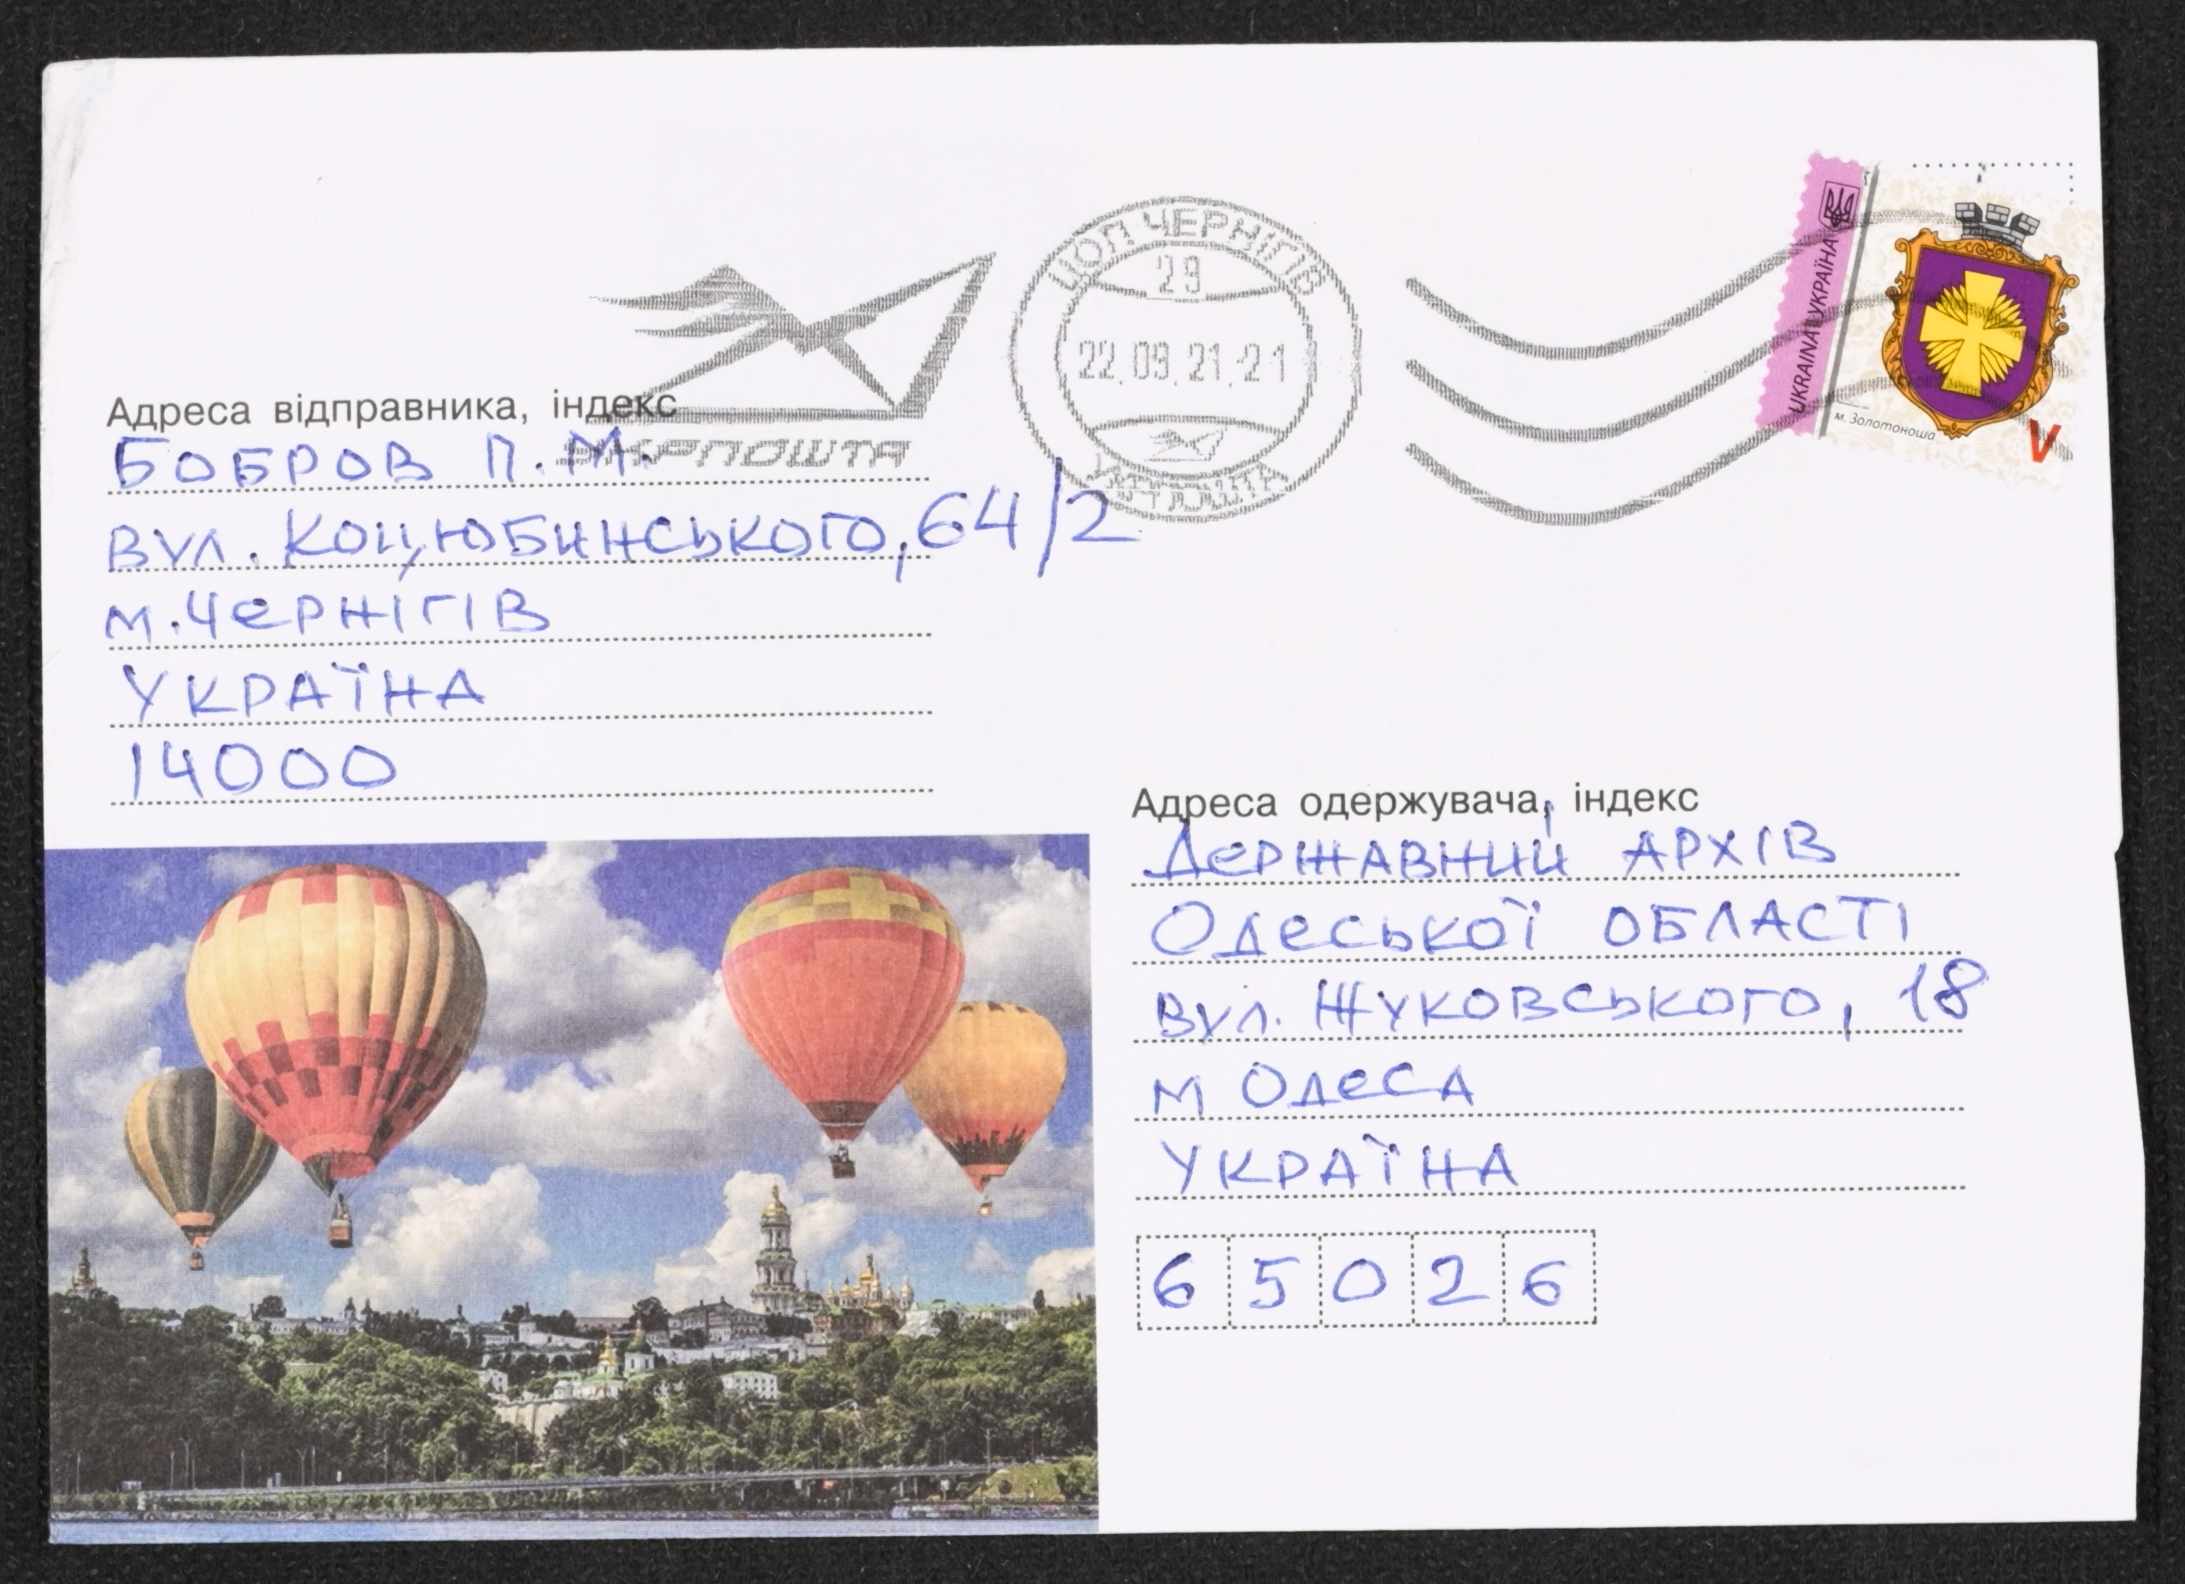 Адреса відправника, індекс
БОБРОВ П.М.
ВУЛ. КОЦЮБИНСЬКОГО, 64/2
М. ЧЕРНІГІВ
УКРАЇНА
14000
УКРПОШТА
ЦОП ЧЕРНІГІВ
29
22.09.21-21
УКРАЇНА
UKRAINA УКРАЇНА
м. Золотоноша
V
Адреса одержувача, індекс
ДЕРЖАВНИЙ АРХІВ
ОДЕСЬКОЇ ОБЛАСТІ
ВУЛ. ЖУКОВСЬКОГО, 18
М ОДЕСА
УКРАЇНА
65026